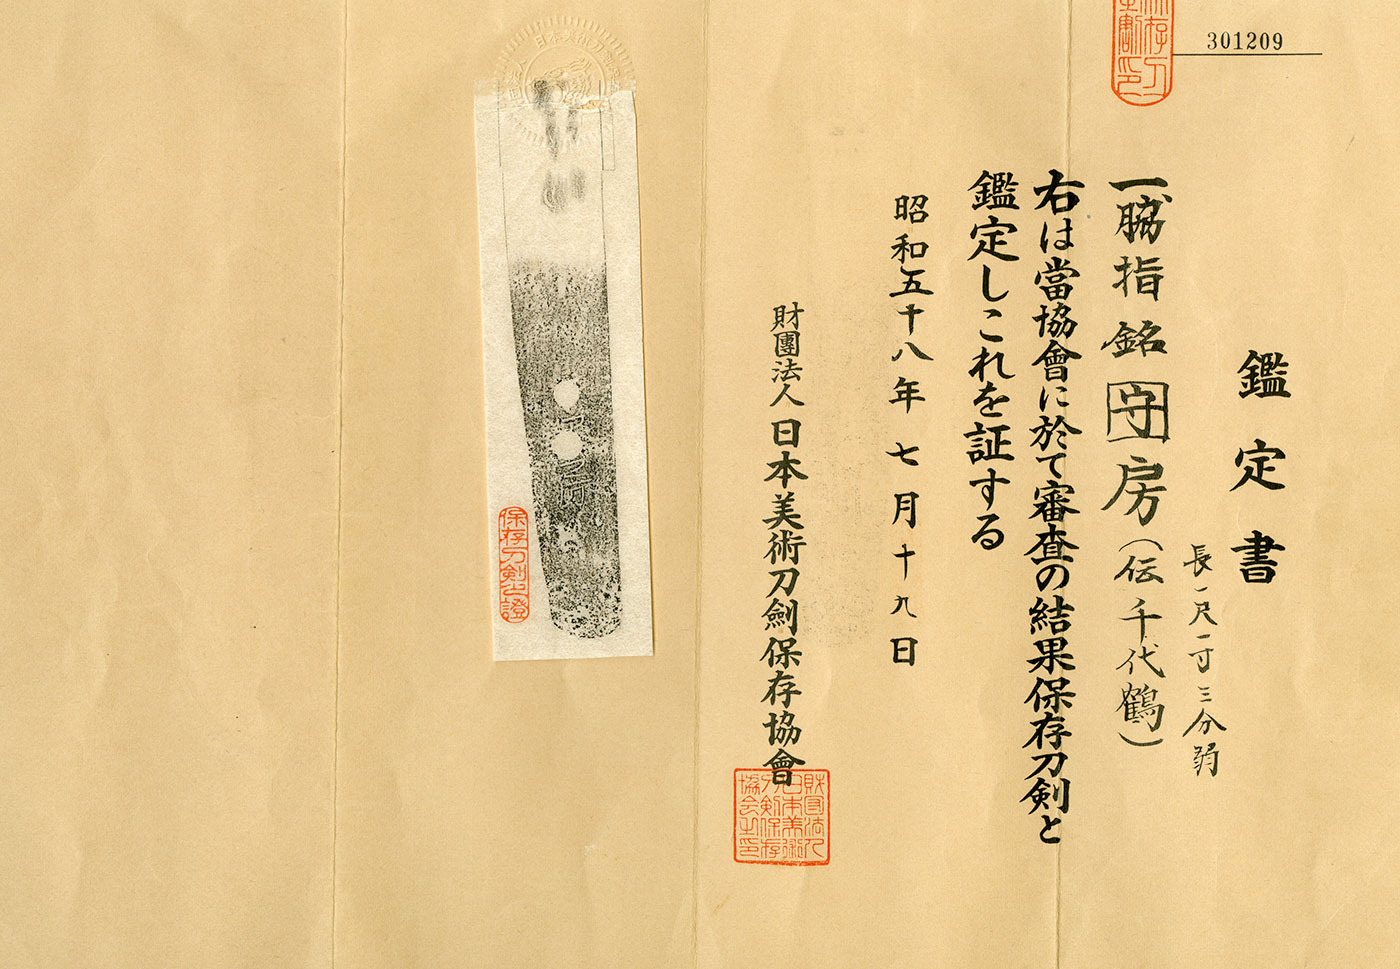 301209
鑑定書
長一尺一寸三分弱
一脇指銘守房(伝千代鶴)
右は當協會に於て審査の結果保存刀剣と
鑑定しこれを証する
昭和五十八年七月十九日
財團法人日本美術刀劍保存協會
財団法人日本美術刀剣保存協会之印
保存刀剣之證